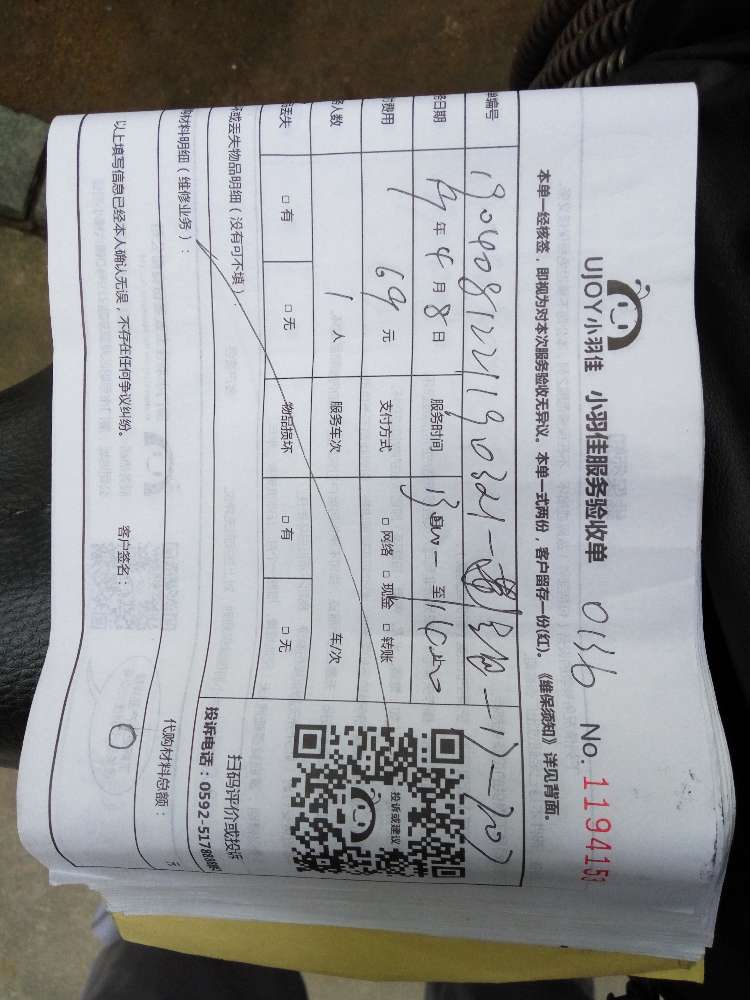 UJOY小羽佳 小羽佳服务验收单 0136 No. 119415
本单一经核签，即视为对本次服务验收无异议。本单一式两份，客户留存一份(红)。《维保须知》详见背面。
单编号 190408122119032
日期 19年4月8日 服务时间 至
费用 169元 支付方式 □ 网络 □ 现金 □ 转账
人数 1人 服务车次 车/次
丢失 □ 有 □ 无 物品损坏 □ 有 □ 无
坏或丢失物品明细（没有可不填）：
投诉或建议
扫码评价或投诉
投诉电话：0592-5178
材料明细（维修业务）： 代购材料总额： 元
以上填写信息已经本人确认无误，不存在任何争议纠纷。 客户签名：